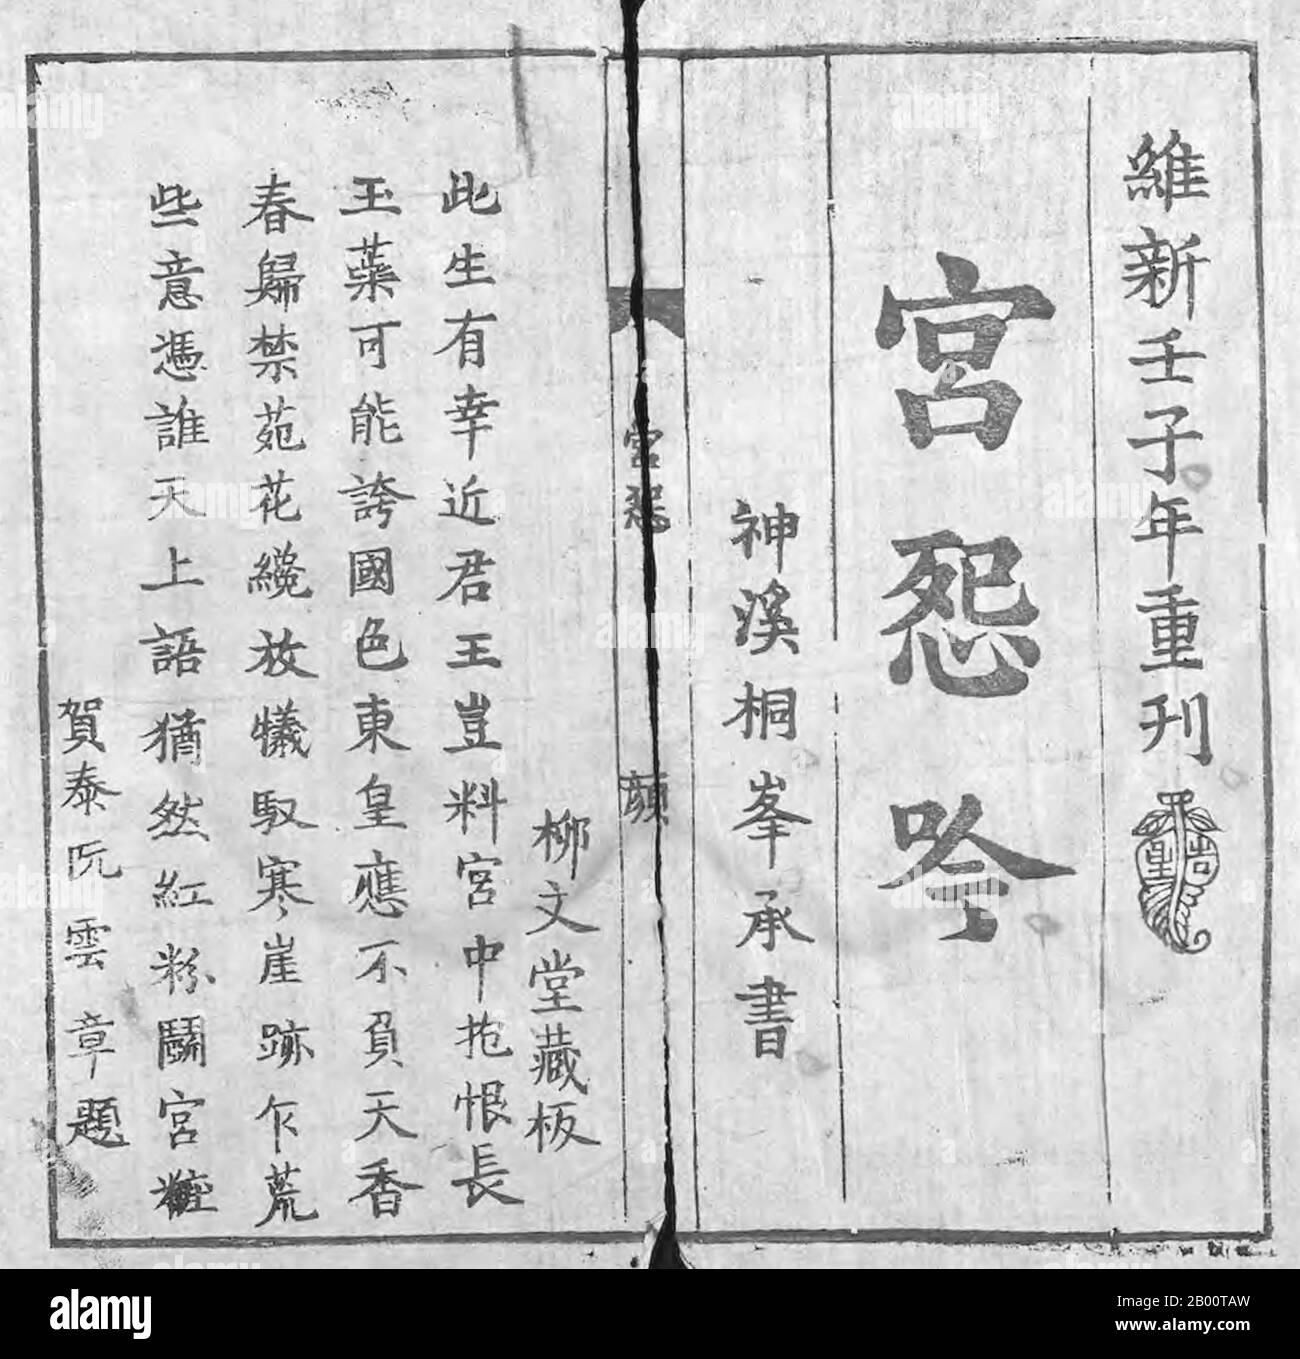 維新壬子年重刊
宮怨吟
神溪桐峯承書
宮怨
顔
柳文堂藏板
此生有幸近君王豈料宮中抱恨長
玉蘂可能誇國色東皇應不負天香
春歸禁苑花纔放犧馭寒崖跡乍荒
些意憑誰天上語猶然紅粉鬪宮粧
賀泰阮雲章題
alamy
Image ID: 2B00TAW
www.alamy.com